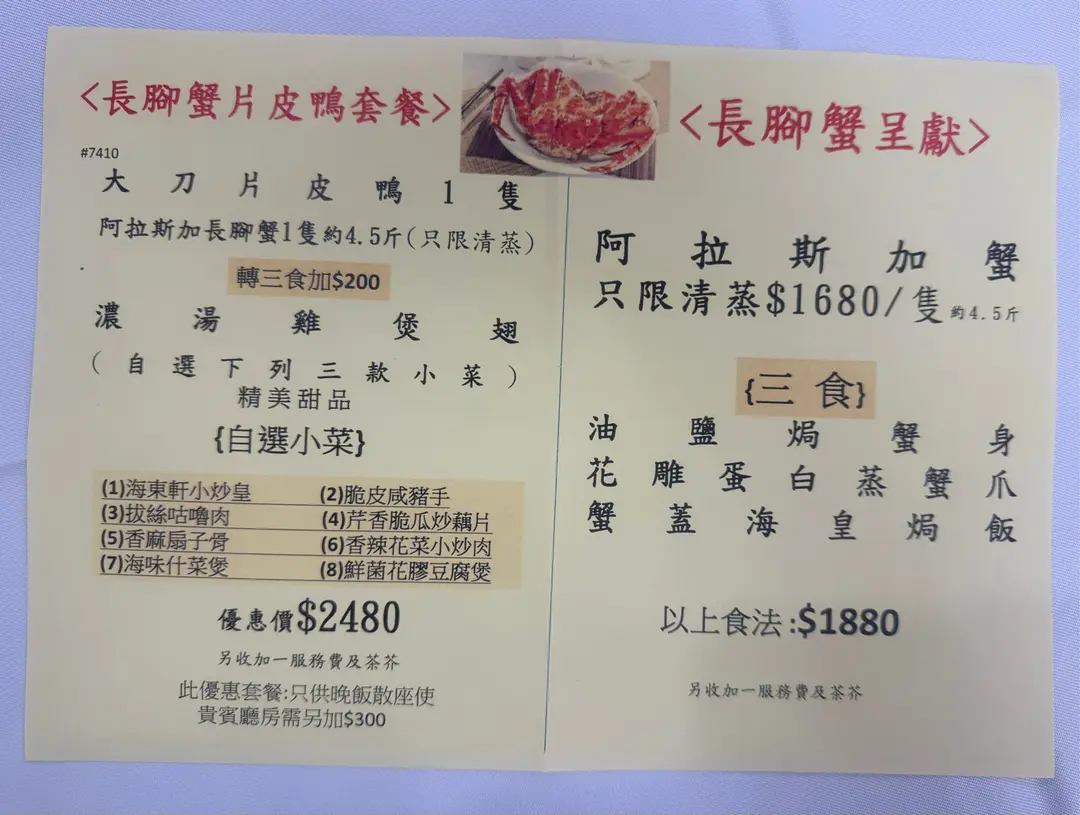 <長腳蟹片皮鴨套餐>
#7410
大刀片皮鴨1隻
阿拉斯加長腳蟹1隻約4.5斤(只限清蒸)
轉三食加$200
濃湯雞煲翅
(自選下列三款小菜)
精美甜品
{自選小菜}
(1)海東軒小炒皇 (2)脆皮咸豬手
(3)拔絲咕嚕肉 (4)芹香脆瓜炒藕片
(5)香麻扇子骨 (6)香辣花菜小炒肉
(7)海味什菜煲 (8)鮮菌花膠豆腐煲
優惠價$2480
另收加一服務費及茶芥
此優惠套餐:只供晚飯散座使
貴賓廳房需另加$300
<長腳蟹呈獻>
阿拉斯加蟹
只限清蒸$1680/隻約4.5斤
{三食}
油鹽焗蟹身
花雕蛋白蒸蟹爪
蟹蓋海皇焗飯
以上食法:$1880
另收加一服務費及茶芥